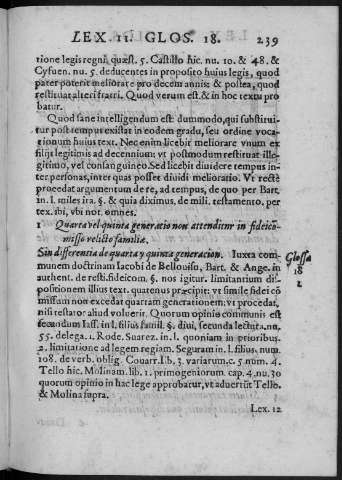 LEX. 11. GLOS. 18. 239
tione legis regni, quæst. 5. Castillo hic. nu. 10. & 48. &
Cyfuen. nu. 5. deducentes in proposito huius legis, quod
pater poterit meliorare pro decem annis; & postea, quod
restituat alteri fratri. Quod verum est. & in hoc textu pro
batur.
Quod sane intelligendum est dummodo, qui substitui-
tur post tempus existat in eodem gradu, seu ordine voca-
tionum huius text. Nec enim licebit meliorare vnum ex
filijs legitimis ad decennium; vt postmodum restituat ille-
gitimo, vel consanguineo. Sed licebit diuidere tempus in-
ter personas, inter quas posset diuidi melioratio. Vt recte
procedat argumentum de re, ad tempus, de quo per Bart.
in l. miles ita. §. & quia diximus, de mili. testamento. per
tex. ibi, vbi not. omnes.
1 Quarta vel quinta generatio non attenditur in fideicō-
misso relicto familiæ.
Sin differentia de quarta y quinta generacion. Iuxta com-
munem doctrinam Iacobi de Bellouisu, Bart. & Ange. in
authent. de rest. fideicom. §. nos igitur. limitantium dis-
positionem illius text. quatenus præcipit: vt simile fidei cō
missum non excedat quartam generationem; vt procedat,
nisi testator aliud voluerit. Quorum opinio communis est
secundum Iass. in l. filius famil. §. diui, secunda lectura, nu.
55. delega. 1. Rode. Suarez. in l. quoniam in prioribus.
2. limitatione ad legem regiam. Seguram in l. filius. num.
108. de verb. oblig. Couarr. lib. 3. variarum, c. 5. num. 4.
Tello hic. Molinam. lib. 1. primogeniorum cap. 4. nu. 30
quorum opinio in hac lege approbatur, vt aduertūt Tello.
& Molina supra.
Glossa
18
1
Lex. 12